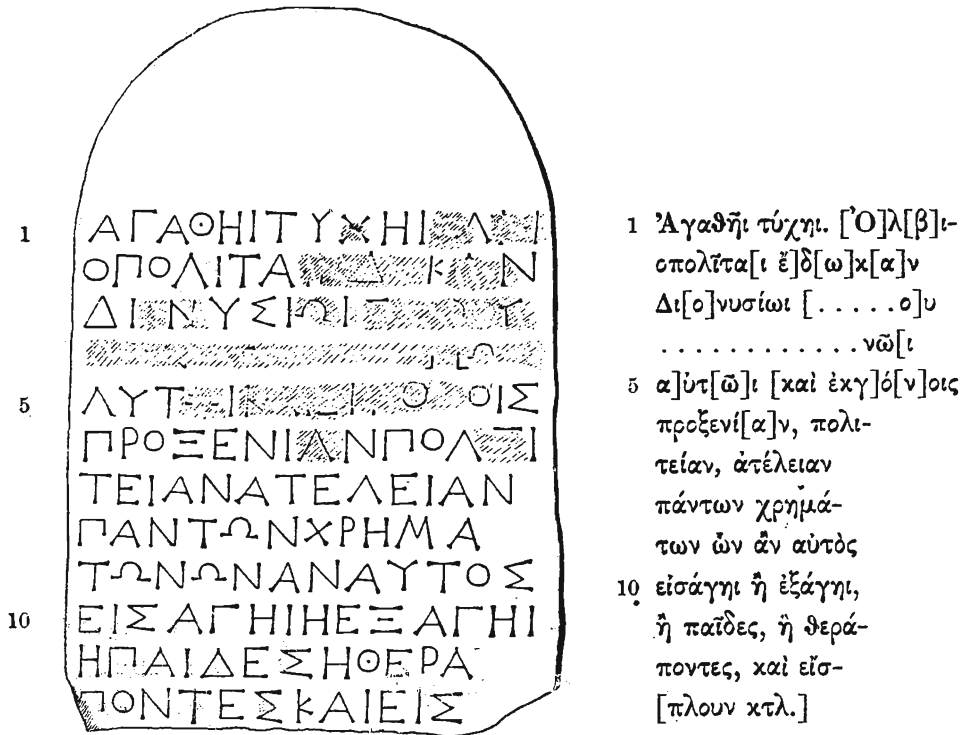 1 ΑΓΑΘΗΙΤΥΧΗΙ Λ Ι
ΟΠΟΛΙΤΑ Δ Κ Ν
ΔΙ ΝΥΣΙΩΙ Υ
Ω
5 ΛΥΤ Ι Ο ΟΙΣ
ΠΡΟΞΕΝΙΑΝΠΟΛ Ι
ΤΕΙΑΝΑΤΕΛΕΙΑΝ
ΠΑΝΤΩΝΧΡΗΜΑ
ΤΩΝΩΝΑΝΑΥΤΟΣ
10 ΕΙΣΑΓΗΙΗΕΞΑΓΗΙ
ΗΠΑΙΔΕΣΗΘΕΡΑ
ΠΟΝΤΕΣΚΑΙΕΙΣ
1 Ἀγαθῆι τύχηι. [Ὀ]λ[β]ι-
οπολῖτα[ι ἔ]δ[ω]κ[α]ν
Δι[ο]νυσίωι [. . . . . ο]υ
. . . . . . . . . . . . . νῶ[ι
5 α]ὐτ[ῶ]ι [καὶ ἐκγ]ό[ν]οις
προξενί[α]ν, πολι-
τείαν, ἀτέλειαν
πάντων χρημά-
των ὧν ἂν αὐτὸς
10 εἰσάγηι ἢ ἐξάγηι,
ἢ παῖδες, ἢ θερά-
ποντες, καὶ εἴσ-
[πλουν κτλ.]